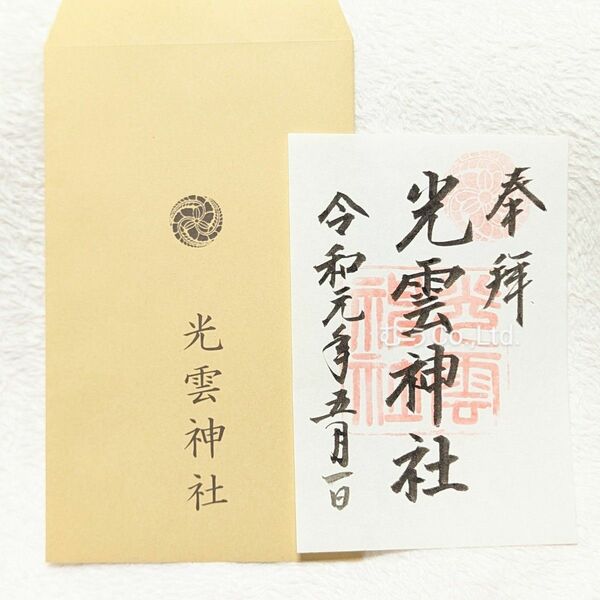 光雲神社
奉拝
光雲神社
令和元年五月一日
光雲神社
むつ Co.,Ltd.